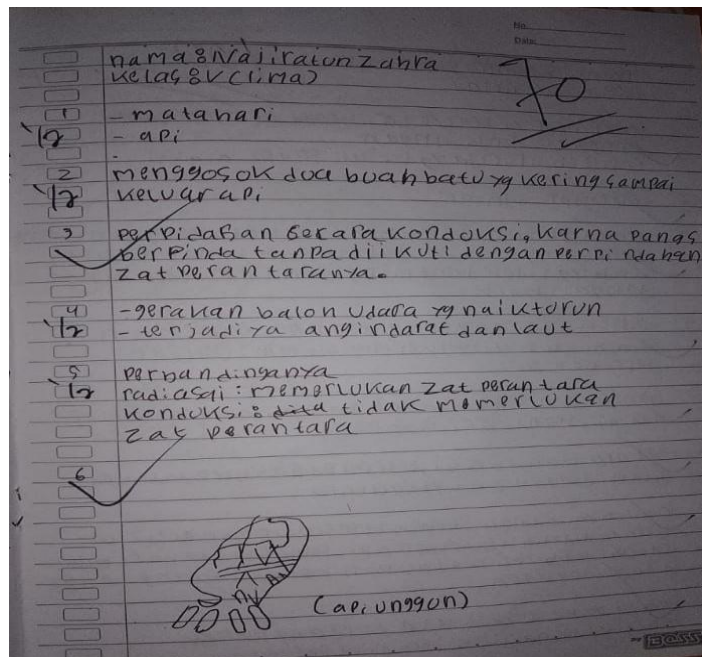 No.
Date:
70
nama : Najiratun Zahra
kelas : V (lima)
1 - matahari
1/2 - api
-
2 menggosok dua buah batu yg kering sampai
1/2 keluar api
3 perpidahan secara konduksi, karna panas
berpinda tanpa diikuti dengan perpindahan
zat perantaranya.
4 - gerakan balon udara yg naik turun
1/2 - terjadiya angin darat dan laut
5 perbandinganya
1/2 radiasai : memerlukan zat perantara
konduksi : tidak memerlukan
zat perantara
6
(api unggun)
BOSS